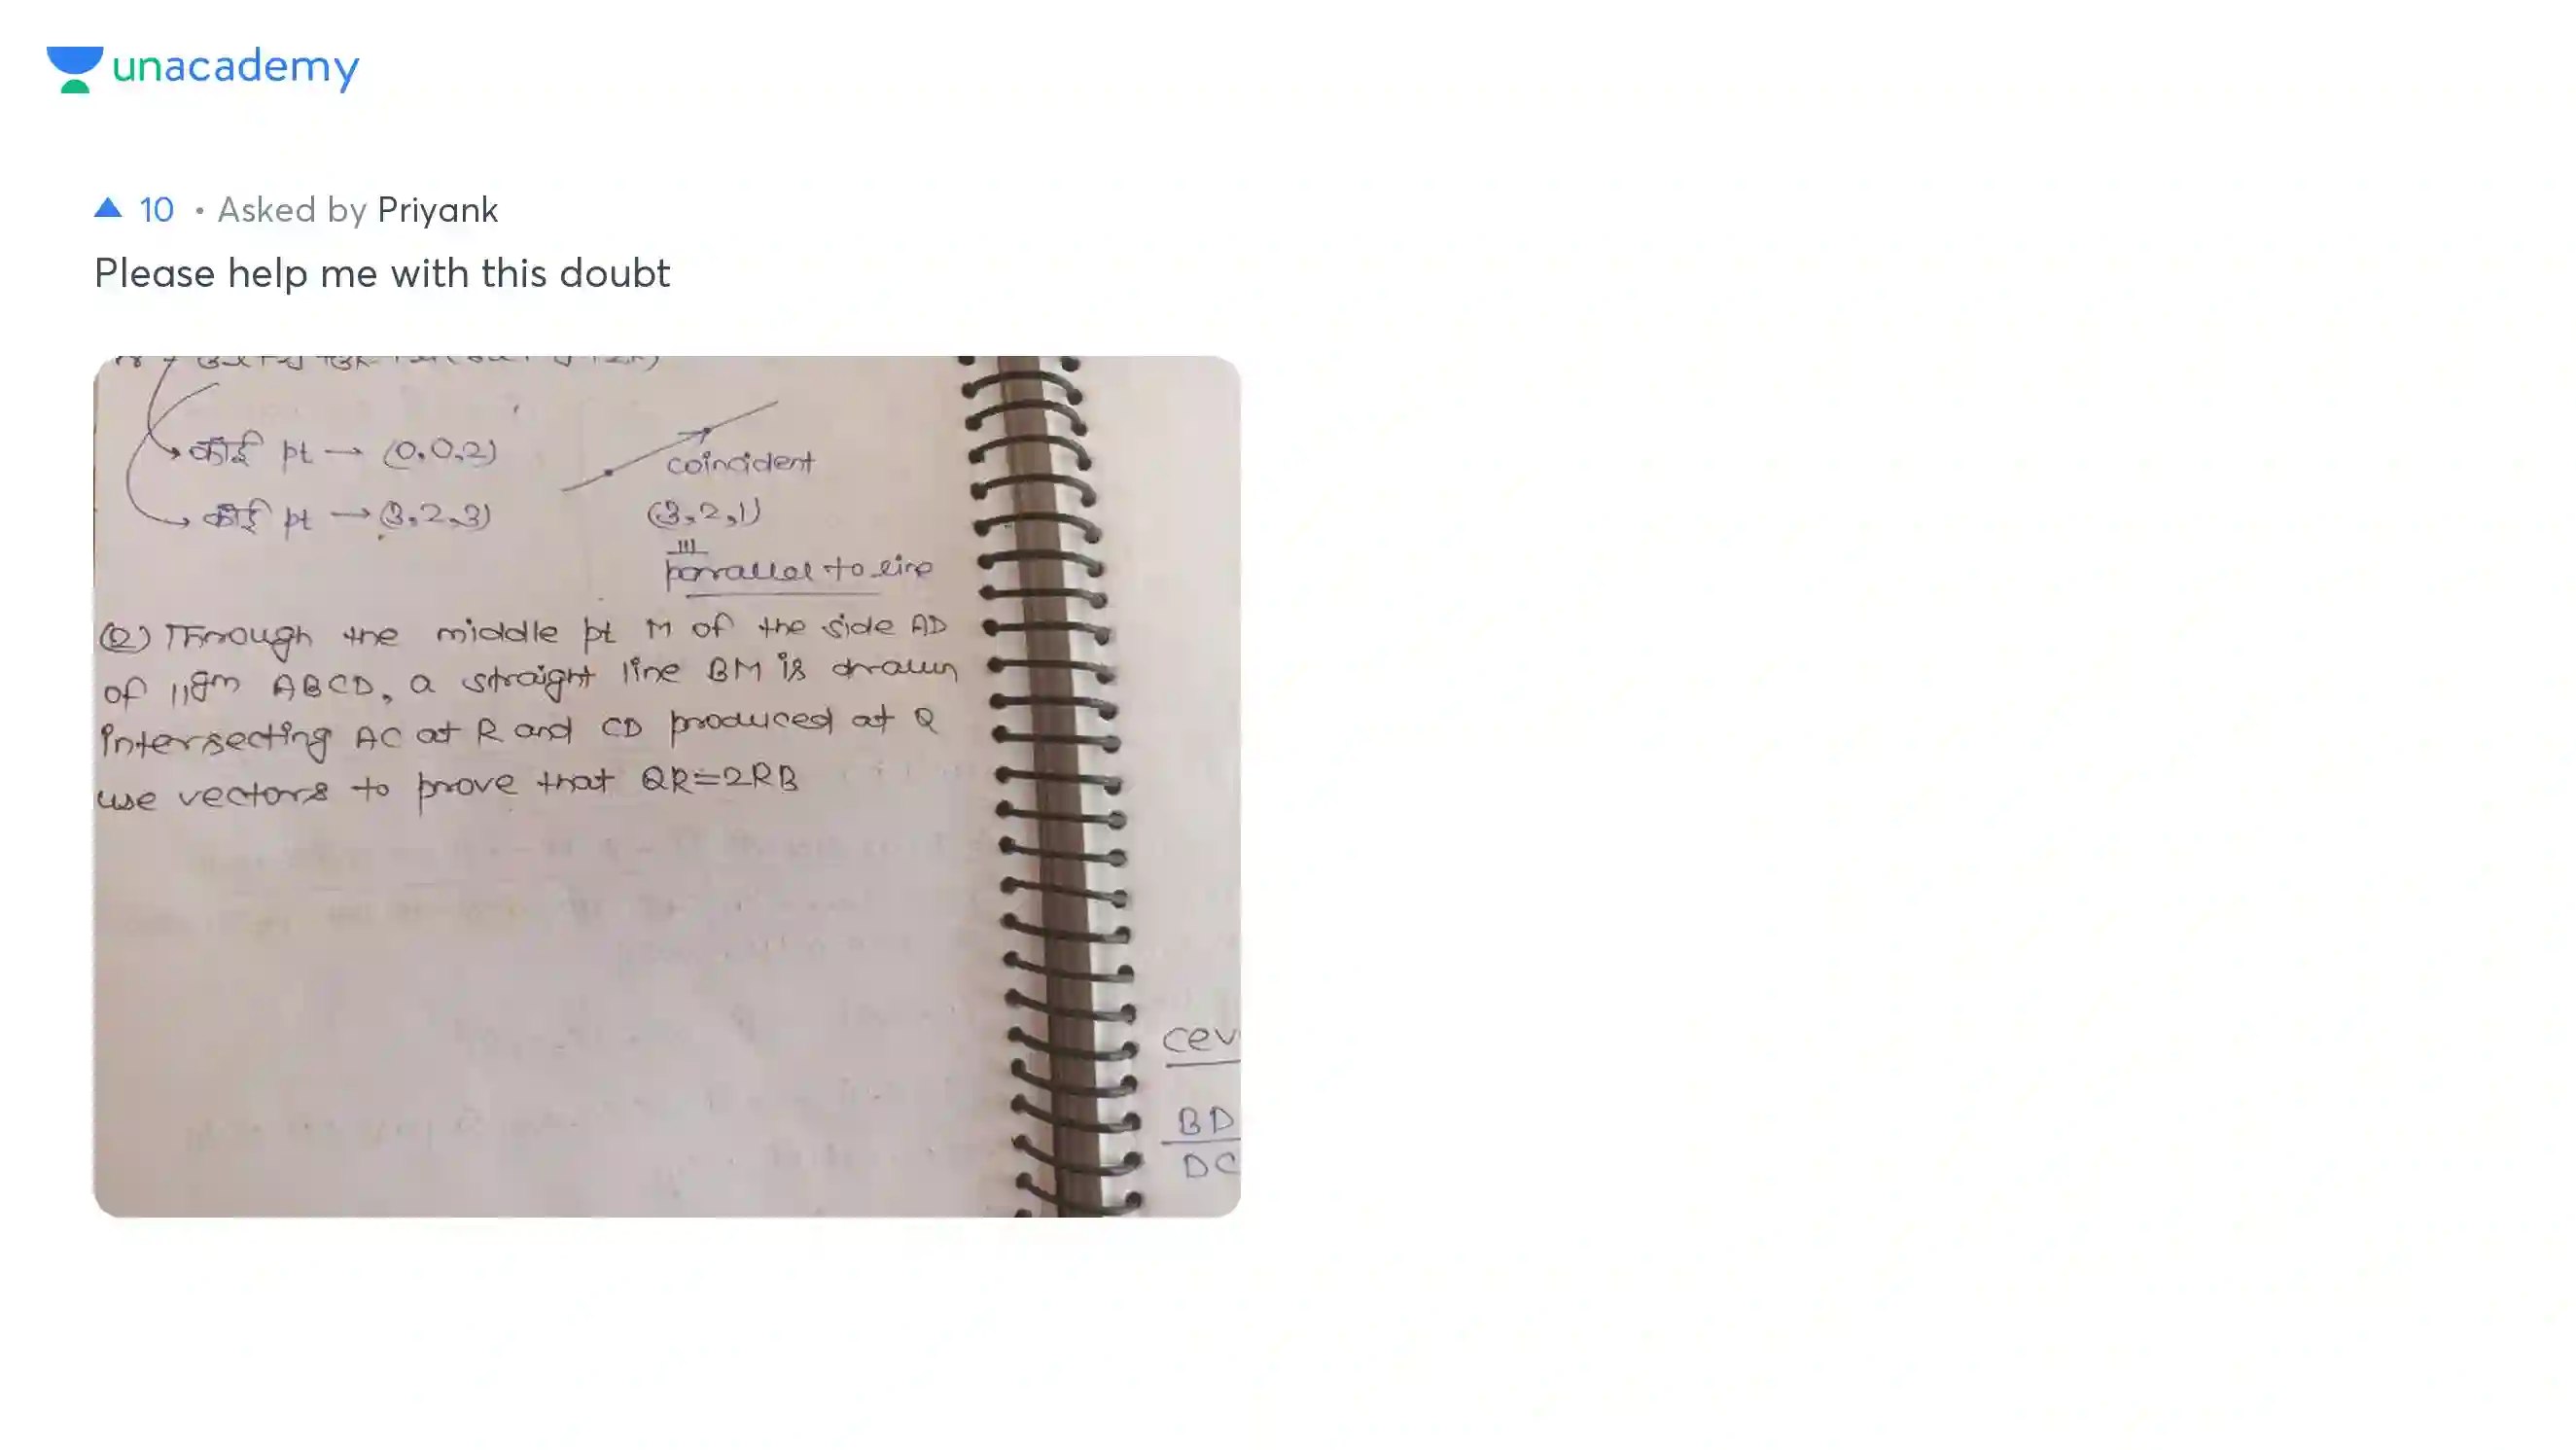 unacademy
10 • Asked by Priyank
Please help me with this doubt
कोई pt → (0,0,2)
coincident
कोई pt → (3,2,3)
(3,2,1)
parallel to line
(Q) Through the middle pt M of the side AD
of ||gm ABCD, a straight line BM is drawn
intersecting AC at R and CD produced at Q
use vectors to prove that QR=2RB
cev
BD
DC